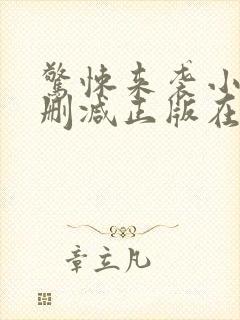 驚悚来袭小
删减正版在
章立凡